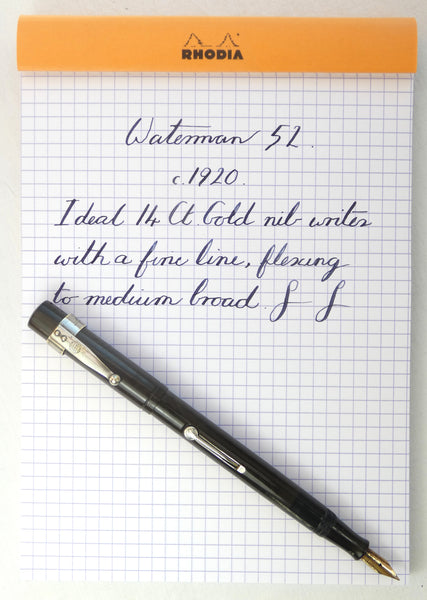 RHODIA
Waterman 52.
c.1920.
Ideal 14 Ct. Gold nib writes
with a fine line, flexing
to medium broad. S S